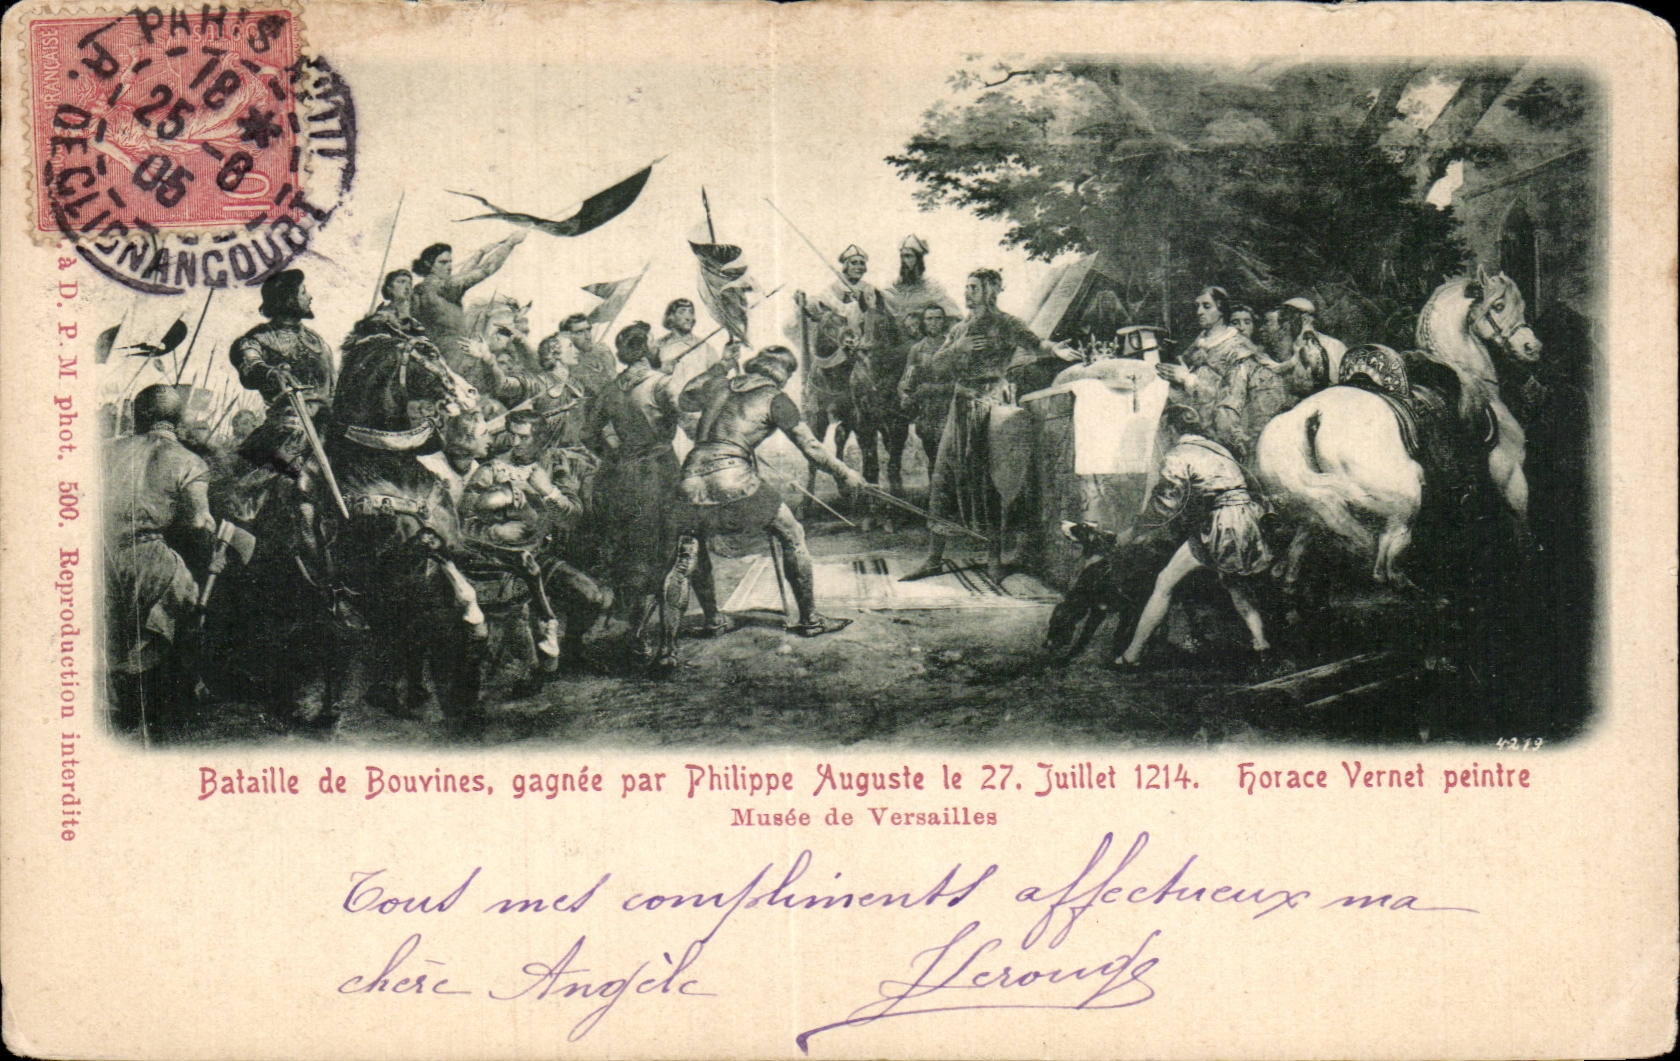 PARIS
R. DE CLIGNANCOURT
18
25 -8
05
FRANÇAISE
10
à D. P. M phot. 500. Reproduction interdite
4219
Bataille de Bouvines, gagnée par Philippe Auguste le 27. Juillet 1214. Horace Vernet peintre
Musée de Versailles
Tous mes compliments affectueux ma
chère Angèle Lerouge